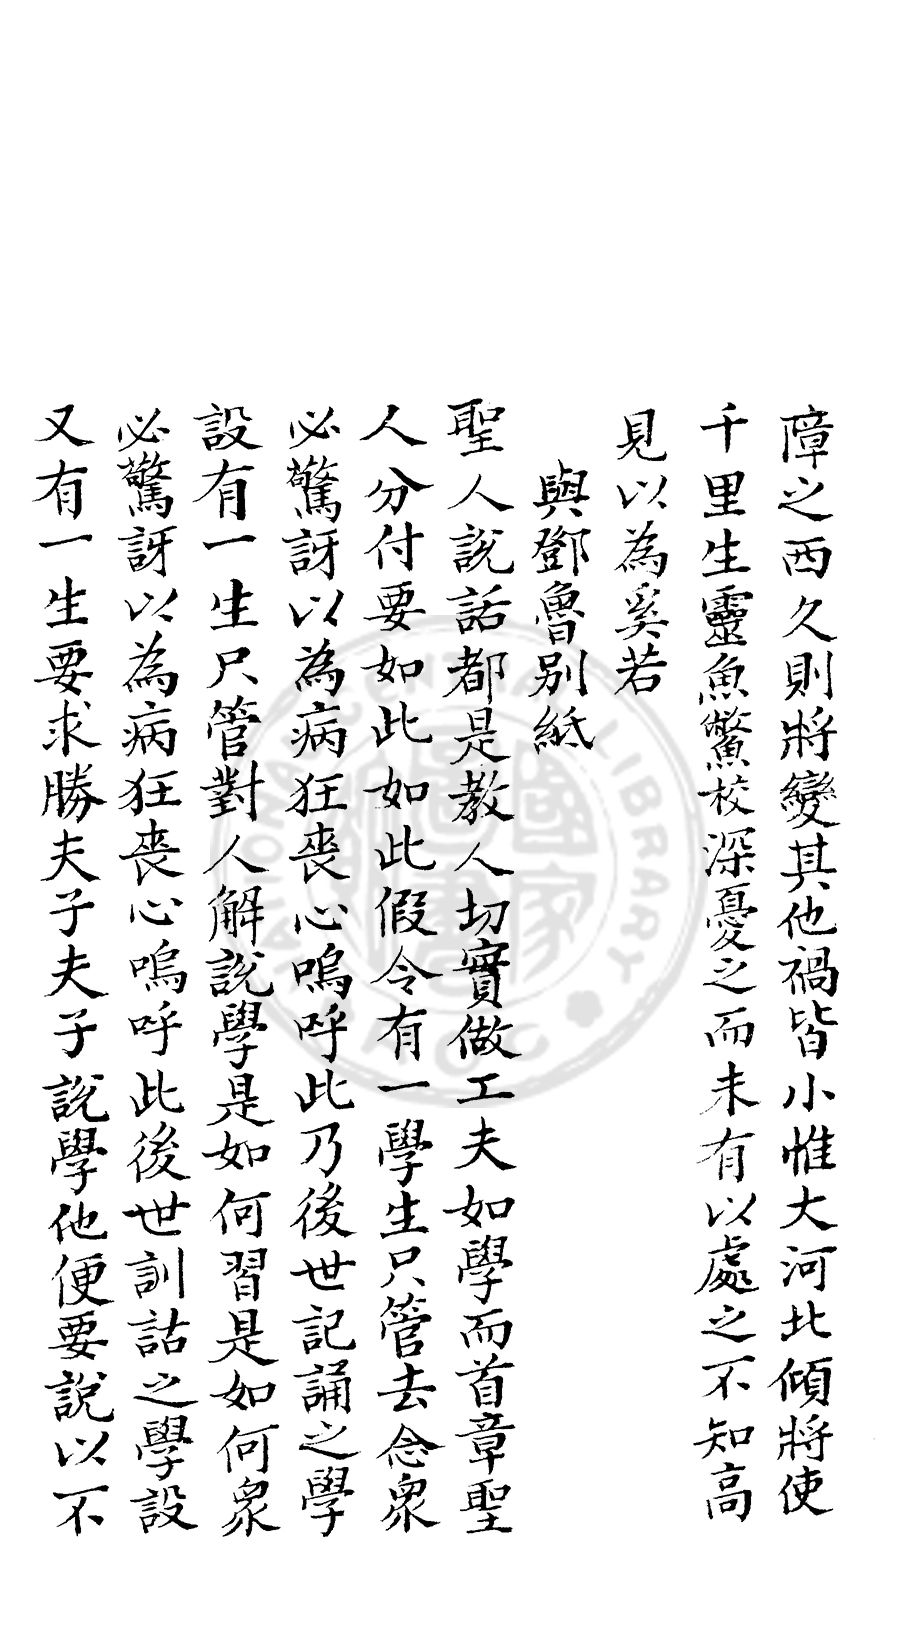 障之西久則將變其他禍皆小惟大河北傾將使
千里生靈魚鱉校深憂之而未有以處之不知高
見以為奚若
與鄧魯別紙
聖人說話都是教人切實做工夫如學而首章聖
人分付要如此如此假令有一學生只管去念衆
必驚訝以為病狂喪心嗚呼此乃後世記誦之學
設有一生只管對人解說學是如何習是如何衆
必驚訝以為病狂喪心嗚呼此後世訓詁之學設
又有一生要求勝夫子夫子說學他便要說以不
國家圖書館
NATIONAL CENTRAL LIBRARY